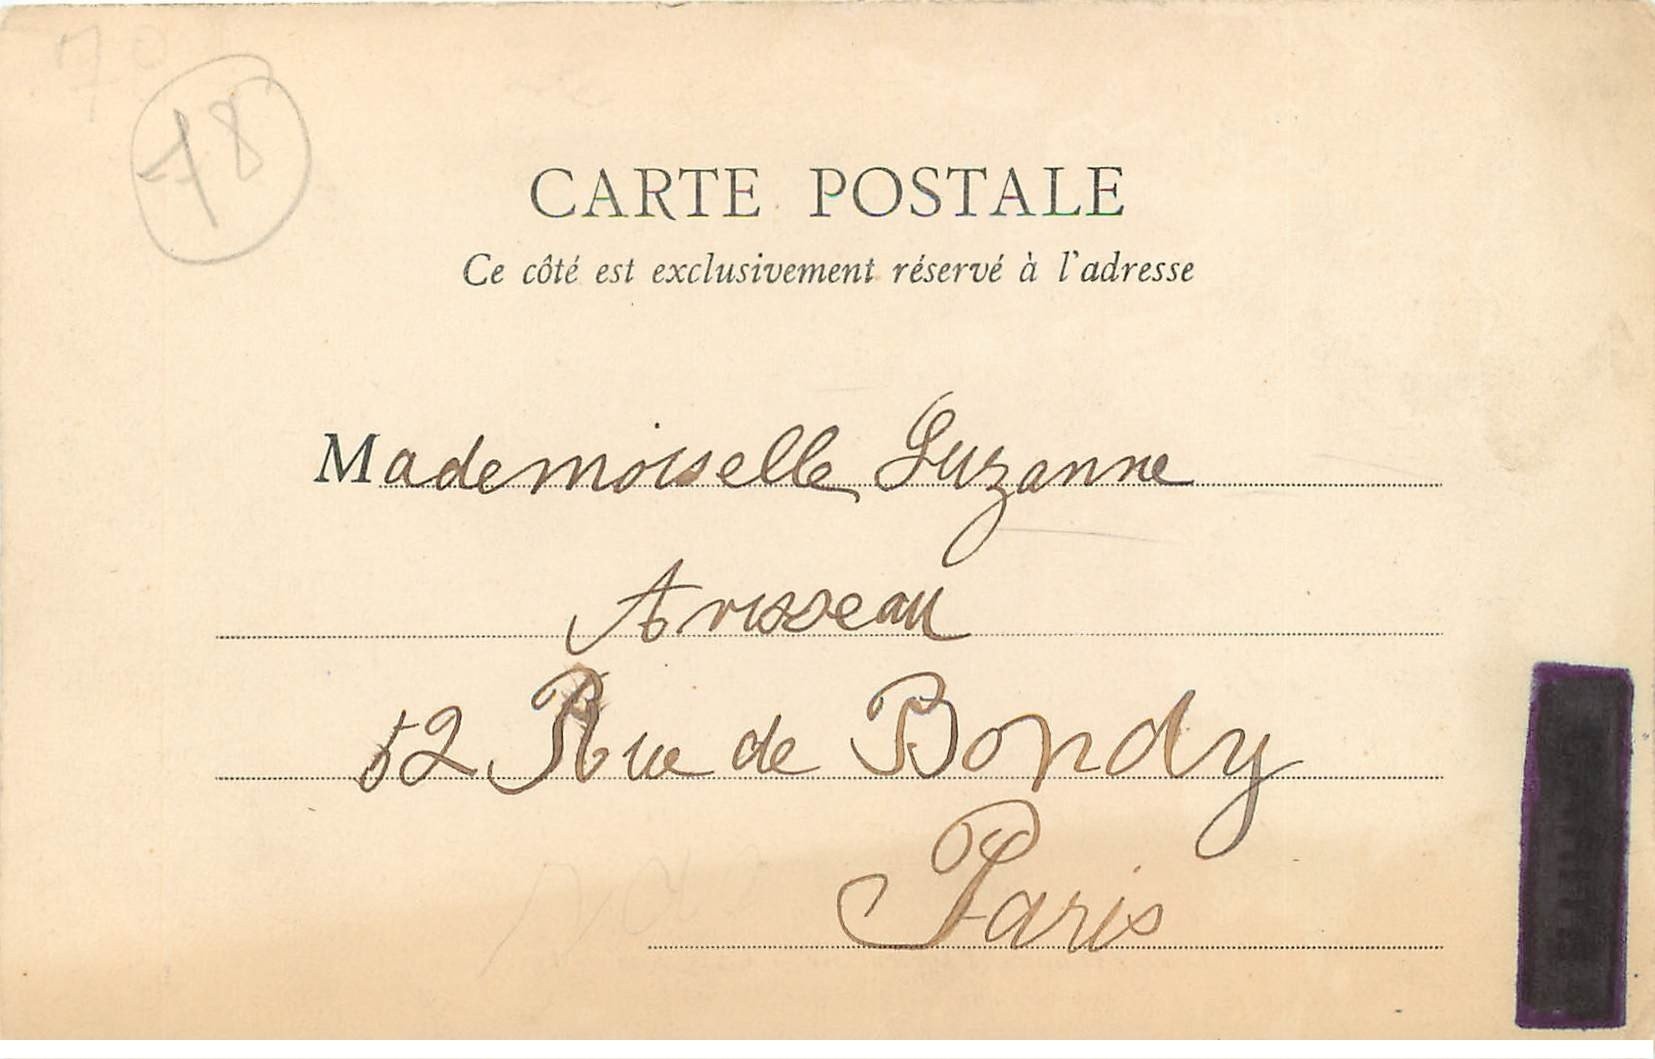 78
CARTE POSTALE
Ce côté est exclusivement réservé à l'adresse
Mademoiselle Suzanne
Arisseau
52 Rue de Bondy
Paris